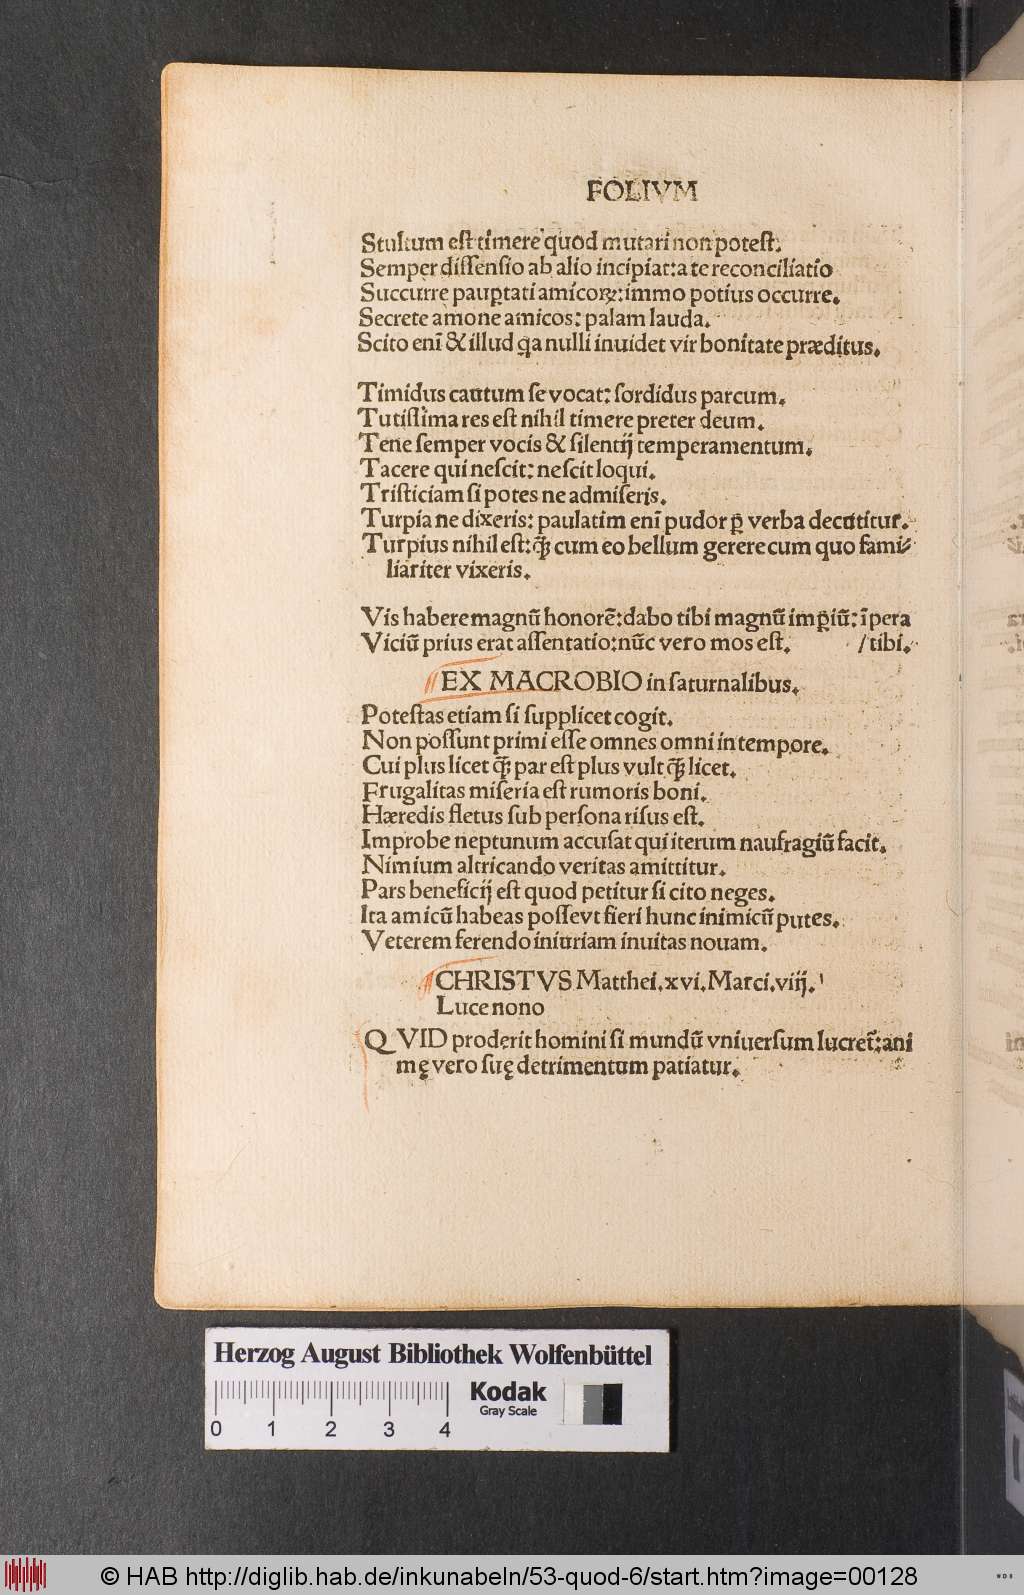 FOLIVM
Stultum eſt timere quod mutari non poteſt.
Semper diſſenſio ab alio incipiat: a te reconciliatio
Succurre paup̱tati amicoꝝ: immo potius occurre.
Secrete amone amicos: palam lauda.
Scito enī & illud q̱a nulli inuidet vir bonitate præditus.
Timidus cautum ſe vocat: ſordidus parcum.
Tutiſſima res eſt nihil timere preter deum.
Tene ſemper vocis & ſilentij temperamentum.
Tacere qui neſcit: neſcit loqui.
Triſticiam ſi potes ne admiſeris.
Turpia ne dixeris: paulatim enī pudor ꝑ verba decutitur.
Turpius nihil eſt: ꝙ̄ cum eo bellum gerere cum quo fami⸗
liariter vixeris.
Vis habere magnū honorē: dabo tibi magnū imꝑiū: īpera
Viciū prius erat aſſentatio: nūc vero mos eſt. /tibi.
EX MACROBIO in ſaturnalibus.
Poteſtas etiam ſi ſupplicet cogit.
Non poſſunt primi eſſe omnes omni in tempore.
Cui plus licet ꝙ̄ par eſt plus vult ꝙ̄ licet.
Frugalitas miſeria eſt rumoris boni.
Hæredis fletus ſub perſona riſus eſt.
Improbe neptunum accuſat qui iterum naufragiū facit.
Nimium altricando veritas amittitur.
Pars beneficij eſt quod petitur ſi cito neges.
Ita amicū habeas poſſe vt fieri hunc inimicū putes.
Veterem ferendo iniuriam inuitas nouam.
CHRISTVS Matthei.xvi.Marci.viij.
Luce nono
QVID proderit homini ſi mundū vniuerſum lucret̄: ani
mę vero ſuę detrimentum patiatur.
Herzog August Bibliothek Wolfenbüttel
Kodak
Gray Scale
0 1 2 3 4
© HAB http://diglib.hab.de/inkunabeln/53-quod-6/start.htm?image=00128